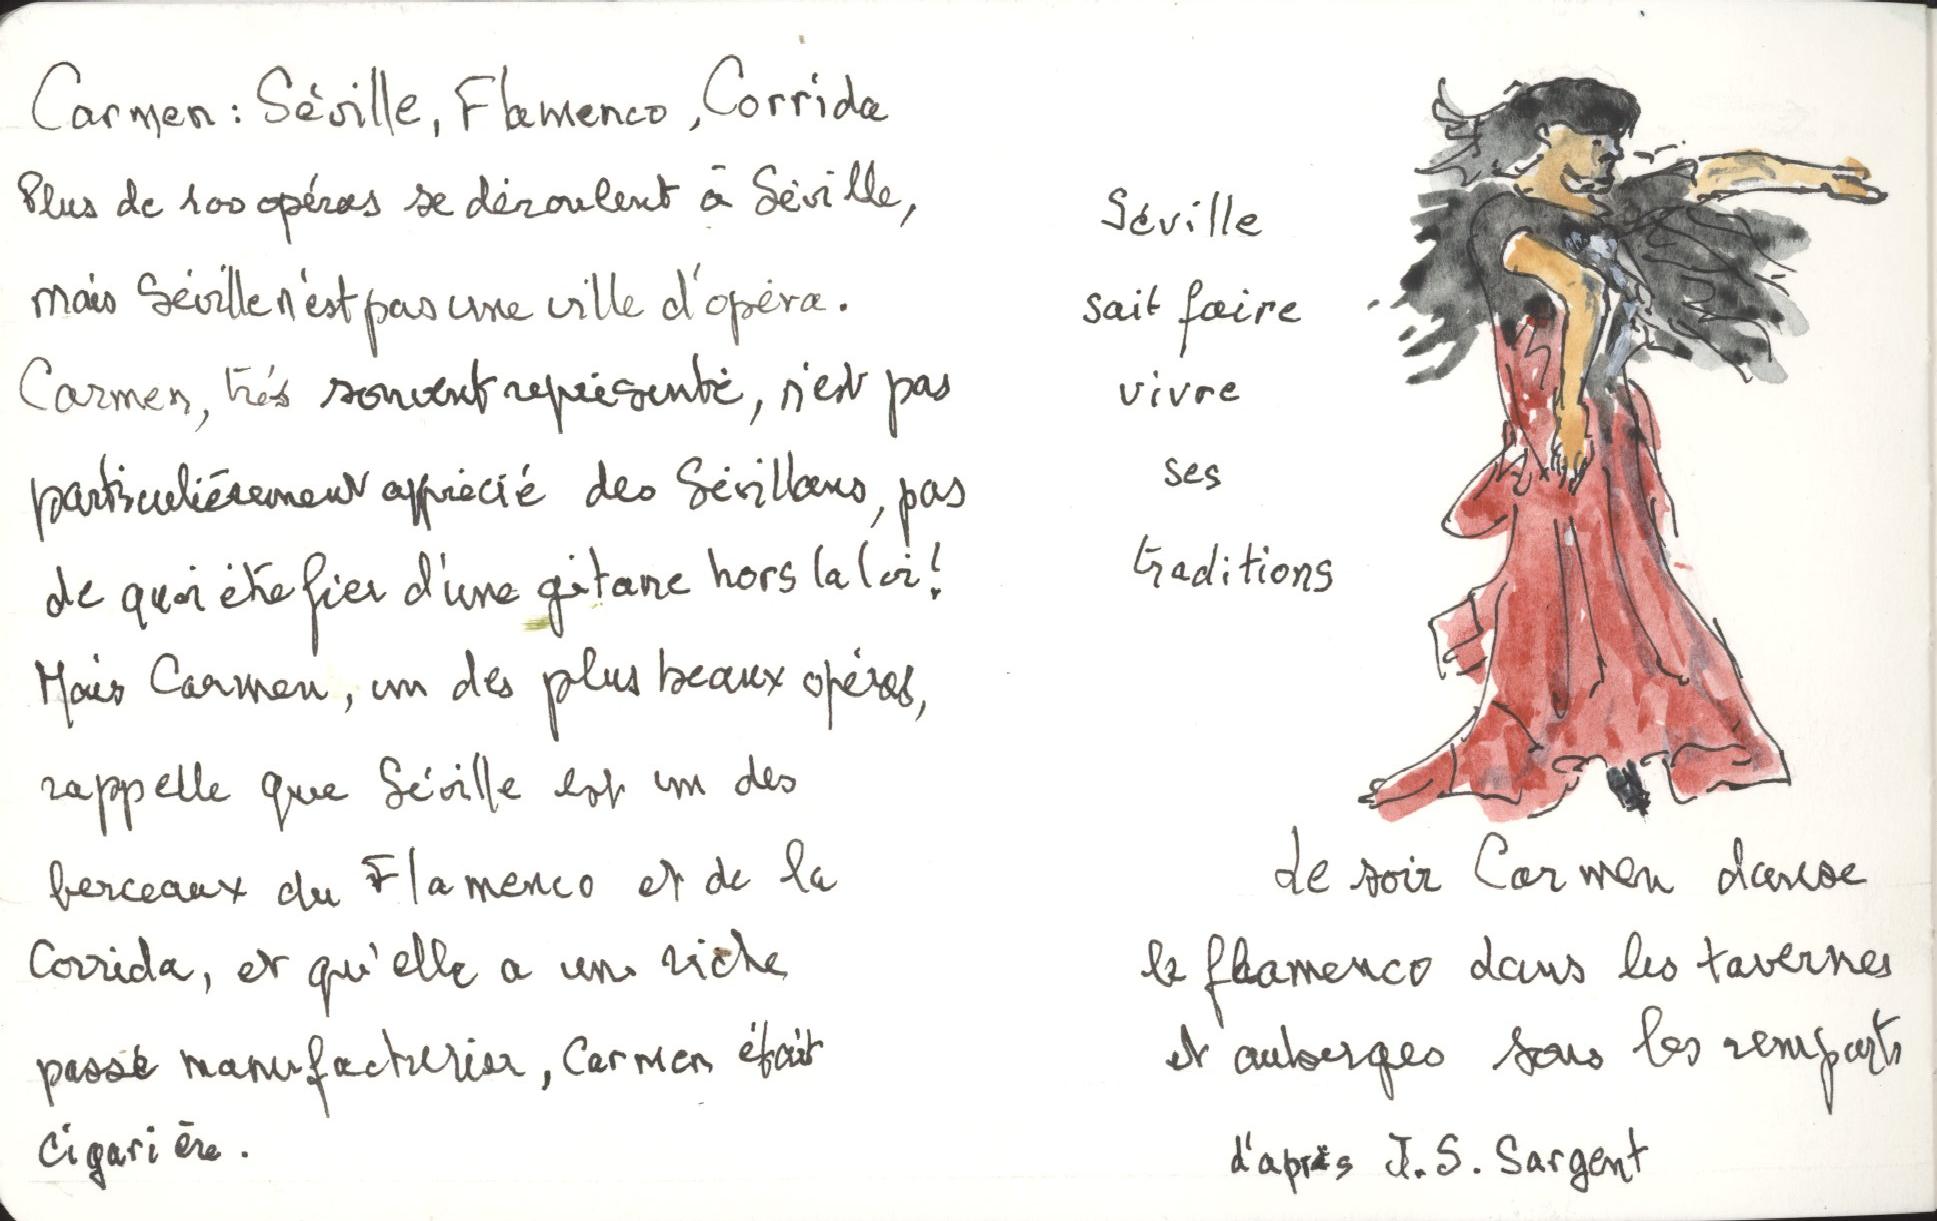 Carmen : Séville, Flamenco, Corrida
Plus de 100 opéras se déroulent à Séville,
mais Séville n'est pas une ville d'opéra.
Carmen, très souvent représenté, n'est pas
particulièrement apprécié des Sévillans, pas
de quoi être fier d'une gitane hors la loi !
Mais Carmen, un des plus beaux opéras,
rappelle que Séville est un des
berceaux du Flamenco et de la
Corrida, et qu'elle a un riche
passé manufacturier, Carmen était
cigarière.
Séville
sait faire
vivre
ses
traditions
Le soir Carmen danse
le flamenco dans les tavernes
et auberges sous les remparts
d'après J.S. Sargent